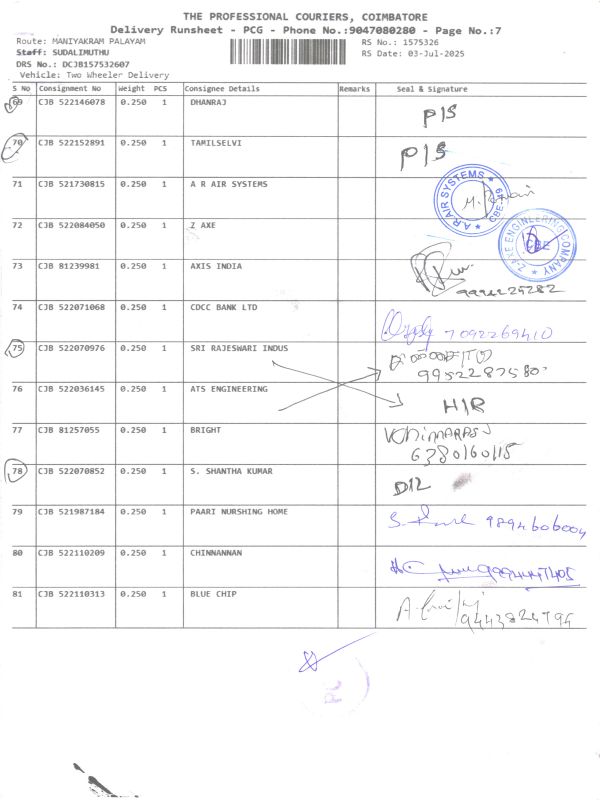 THE PROFESSIONAL COURIERS, COIMBATORE
Delivery Runsheet - PCG - Phone No.:9047080280 - Page No.:7
Route: MANIYAKRAM PALAYAM RS No.: 1575326
Staff: SUDALIMUTHU RS Date: 03-Jul-2025
DRS No.: DCJB157532607
Vehicle: Two Wheeler Delivery
S No Consignment No Weight PCS Consignee Details Remarks Seal & Signature
69 CJB 522146078 0.250 1 DHANRAJ P/S
70 CJB 522152891 0.250 1 TAMILSELVI P/S
71 CJB 521730815 0.250 1 A R AIR SYSTEMS
A.R AIR SYSTEMS CBE
72 CJB 522084050 0.250 1 Z AXE
Z-AXE ENGINEERING COMPANY CBE
73 CJB 81239981 0.250 1 AXIS INDIA
74 CJB 522071068 0.250 1 CDCC BANK LTD 7092269410
75 CJB 522070976 0.250 1 SRI RAJESWARI INDUS
9952287580
76 CJB 522036145 0.250 1 ATS ENGINEERING H/R
77 CJB 81257055 0.250 1 BRIGHT
6380160115
78 CJB 522070852 0.250 1 S. SHANTHA KUMAR D12
79 CJB 521987184 0.250 1 PAARI NURSHING HOME 9894606004
80 CJB 522110209 0.250 1 CHINNANNAN
81 CJB 522110313 0.250 1 BLUE CHIP
9443824794